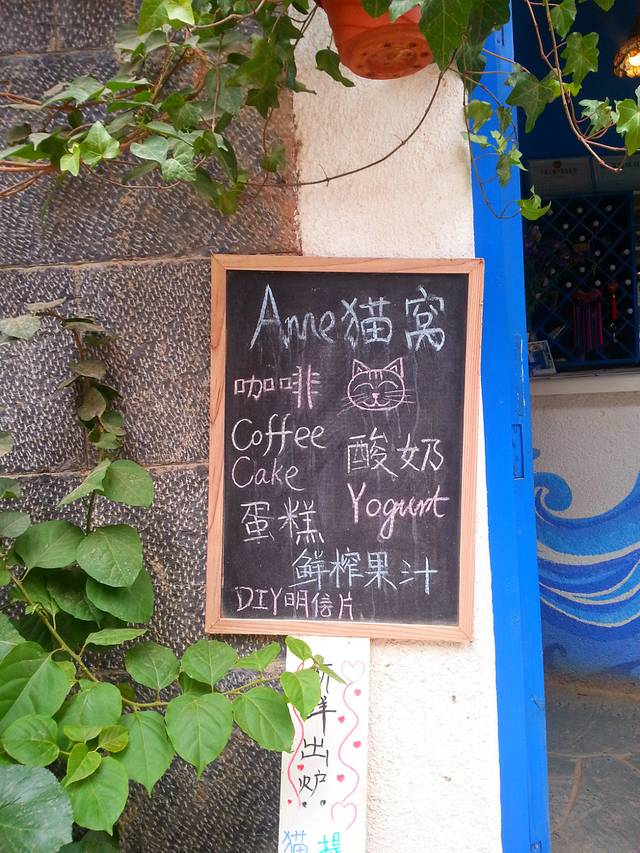 Anne猫窝
咖啡
Coffee
Cake
酸奶
Yogurt
蛋糕
鲜榨果汁
DIY明信片
鲜出炉
猫
提